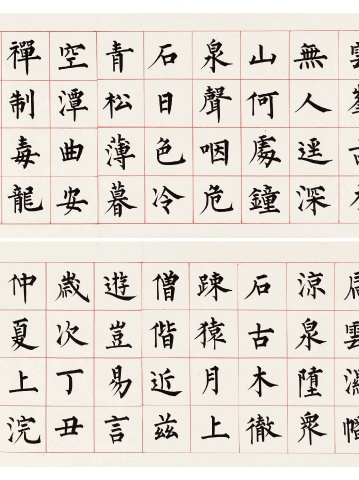 雲峯古木
無人逕深
山何處鐘
泉聲咽危
石日色冷
青松薄暮
空潭曲安
禪制毒龍
雲濕幡
涼泉墮眾
石古木徹
疎猿月上
僧偕近茲
遊豈易言
歲次丁丑
仲夏上浣